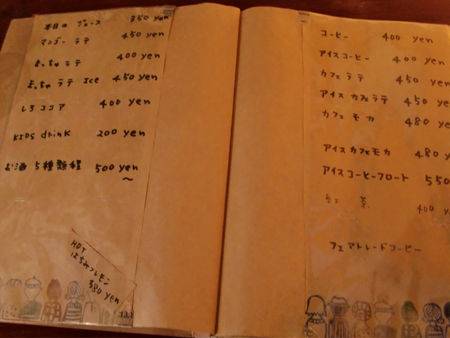 本日のジュース 350 yen
マンゴー ラテ 400 yen
まっちゃ ラテ 400 yen
まっちゃ ラテ Ice 450 yen
しろ ココア 400 yen
KIDS drink 200 yen
お酒 5種類程 500 yen〜
HOT
はちみつレモン
380 yen
コーヒー 400 yen
アイスコーヒー 400 yen
カフェ ラテ 450 yen
アイス カフェラテ 450 yen
カフェ モカ 480 yen
アイス カフェモカ 480 yen
アイスコーヒーフロート 550
紅 茶 400 yen
フェアトレードコーヒー